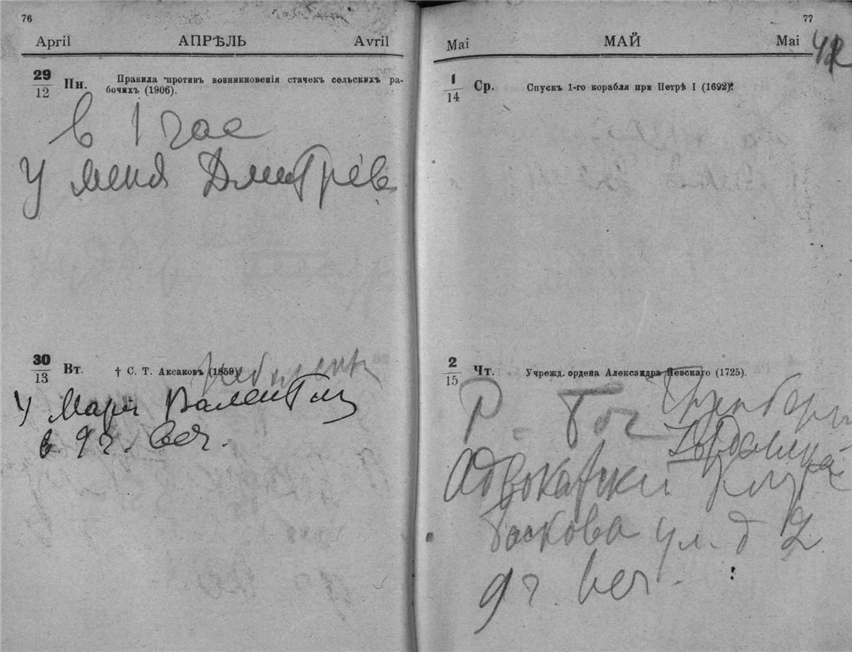 76
April АПРѢЛЬ Avril
29
12
Пн.
Правила противъ возникновенія стачекъ сельскихъ ра-
бочихъ (1906).
в 1 час
У меня Дмитрев
30
13
Вт.
† С. Т. Аксаковъ (1859).
У Марiи Валентин
в 9 ч. веч.
77
Mai МАЙ Mai
1
14
Ср.
Спускъ 1-го корабля при Петрѣ I (1692).
2
15
Чт.
Учрежд. ордена Александра Невскаго (1725).
Адвокатски
Баскова ул. д 2
9 ч. веч.